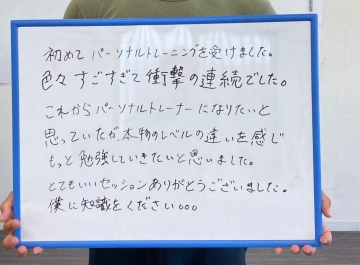 初めてパーソナルトレーニングを受けました。
色々すごすぎて衝撃の連続でした。
これからパーソナルトレーナーになりたいと
思っていたが、本物のレベルの違いを感じ
もっと勉強していきたいと思いました。
とてもいいセッションありがとうございました。
僕に知識をください。。。